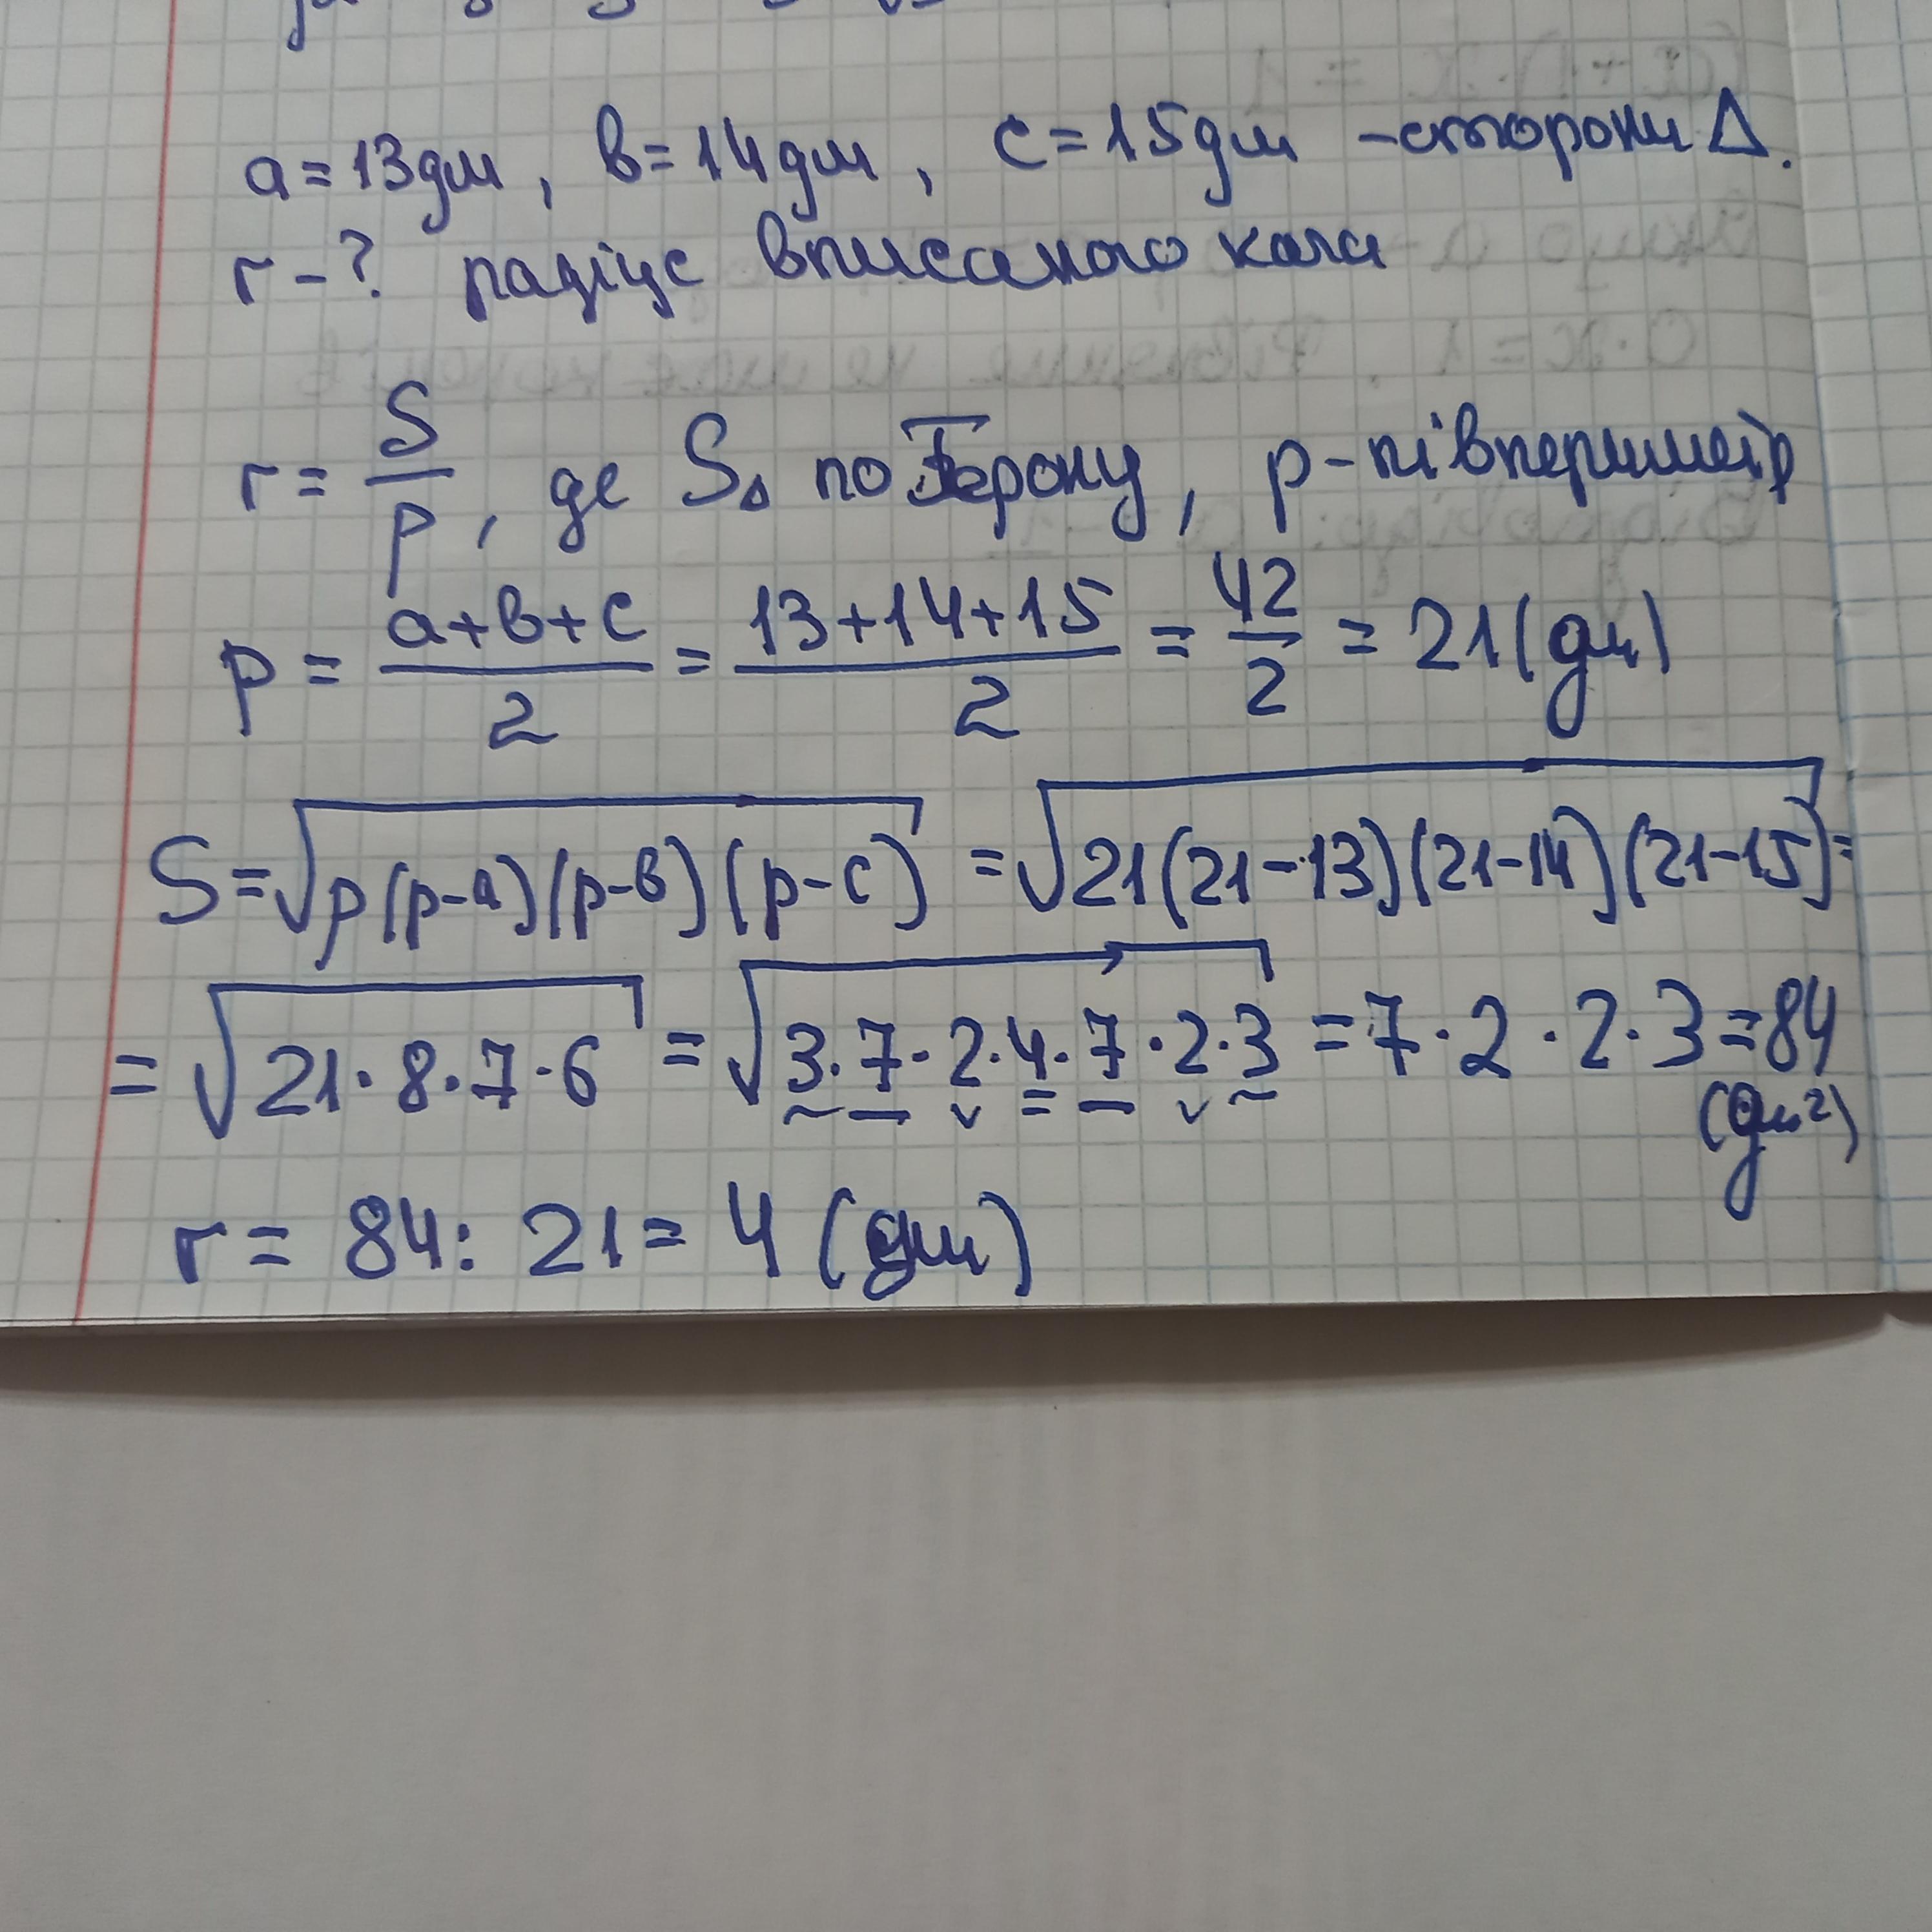 a = 13дм, в = 14дм, с = 15дм - сторони Δ.
r - ? радіус вписаного кола
r = S/p, де S_Δ по Герону, p - півпериметр
p = (a+в+с)/2 = (13+14+15)/2 = 42/2 = 21(дм)
S = √(p(p-a)(p-в)(p-c)) = √(21(21-13)(21-14)(21-15)) =
= √(21·8·7·6) = √(3·7·2·4·7·2·3) = 7·2·2·3 = 84
(дм²)
r = 84 : 21 = 4 (дм)